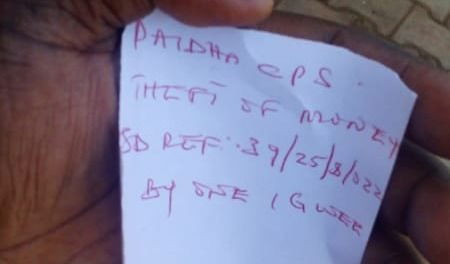 PAIDHA CPS.
THEFT OF MONEY
SD REF: 39/25/8/022
BY ONE